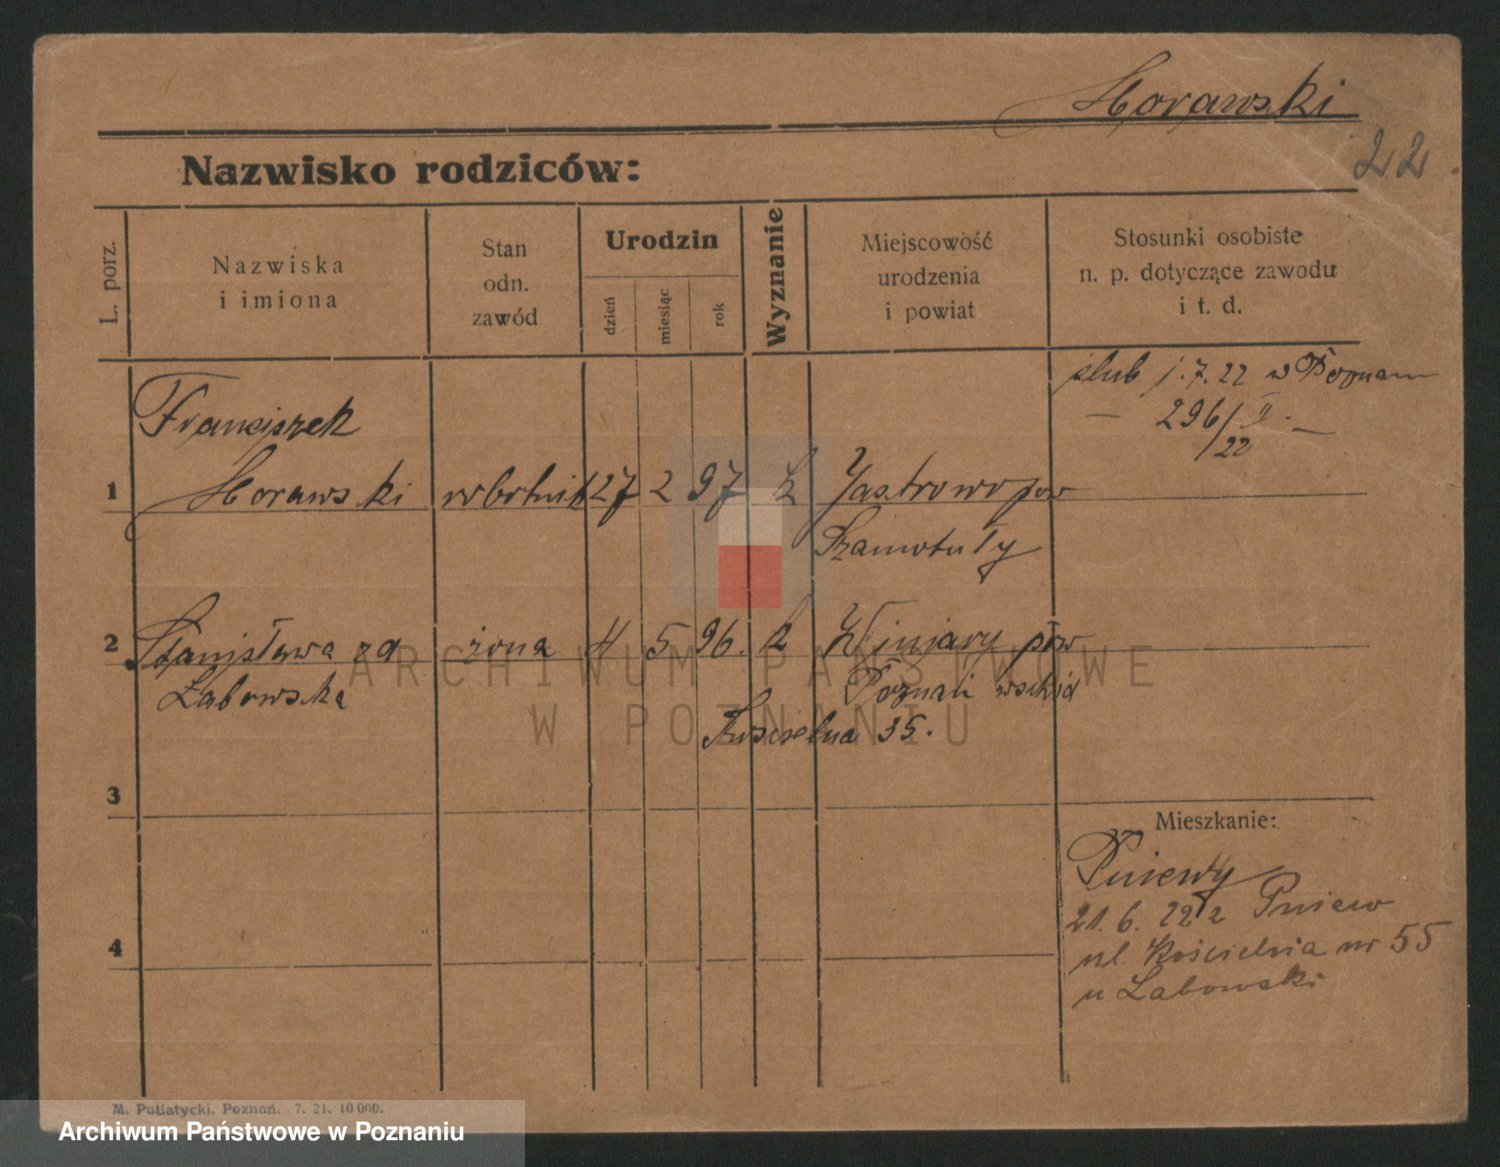 Morawski
22
Nazwisko rodziców:
L. porz.
Nazwiska
i imiona
Stan
odn.
zawód
Urodzin
dzień
miesiąc
rok
Wyznanie
Miejscowość
urodzenia
i powiat
Stosunki osobiste
n. p. dotyczące zawodu
i t. d.
ślub 1.7.22 w Poznaniu
— 296/II. —
22
Franciszek
1 Morawski robotnik 27 2 97 k Jastrowo pow
Szamotuły
2 Stanisława za żona 4 5 96. k Winiary pow
Labowska Poznań wschód
Kościelna 35.
3
Mieszkanie:
Pniewy
21.6.22 z Pniew
ul Kościelna nr 55
u Labowski
4
M. Putiatycki, Poznań. 7. 21. 10 000.
ARCHIWUM PAŃSTWOWE
W POZNANIU
Archiwum Państwowe w Poznaniu